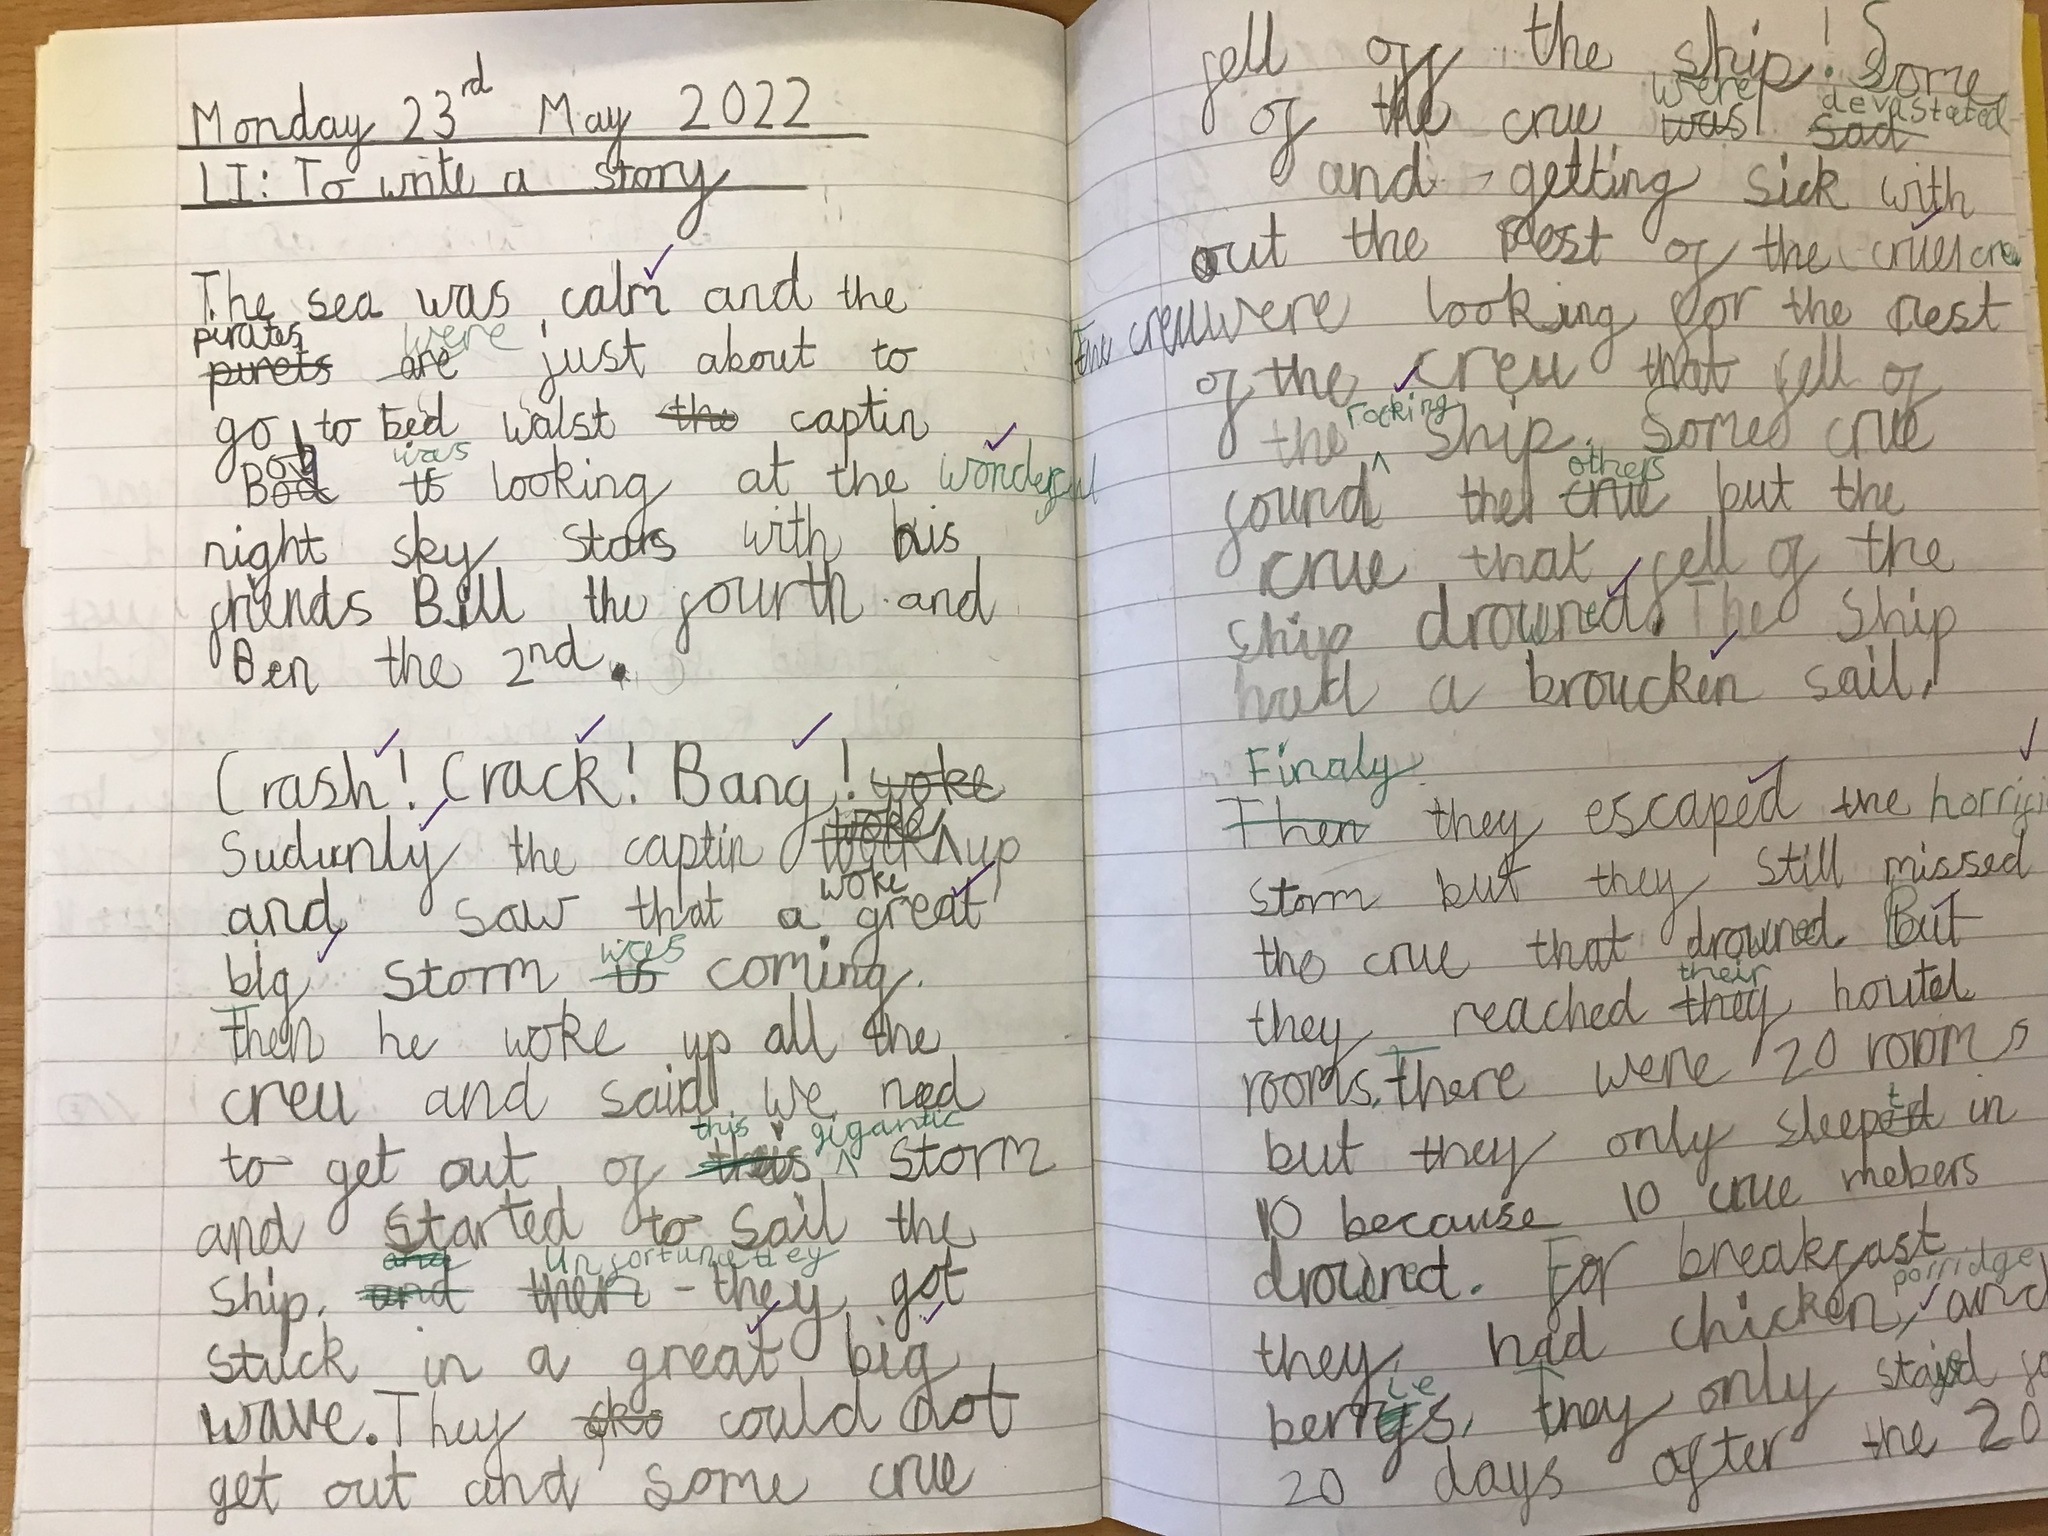 Monday 23rd May 2022
LI: To write a story
The sea was calm and the
pirates were
pirets are just about to
go to bed walst the captin
Bob was
is looking at the wonderful
night sky stars with his
friends Bill the fourth and
Ben the 2nd.
Crash! Crack! Bang! woke
Sudunly the captin woke up
woke
and saw that a great
was
big storm is coming.
Then he woke up all the
creu and said we need
this gigantic
to get out of storm
and started to sail the
and Unfortunetley
Ship. and then - they got
stuck in a great big
wave. They could not
get out and some crue
fell off the ship! Some
were devastated
of the crue was sad
and getting sick with
out the rest of the crue crew
The creu were looking for the rest
of the creu that fell of
rocking
the ship. Some crue
others
found the crue but the
crue that fell of the
ship drowned. The ship
had a broucken sail.
Finaly
Then they escaped the horrific
storm but they still missed
the crue that drowned. But
their
they reached they houtel
rooms. There were 20 rooms
but they only sleept in
10 because 10 crue mebers
drowned. For breakfast
porridge
they had chicken, and
ie
berrys. They only stayed fo
20 days after the 20